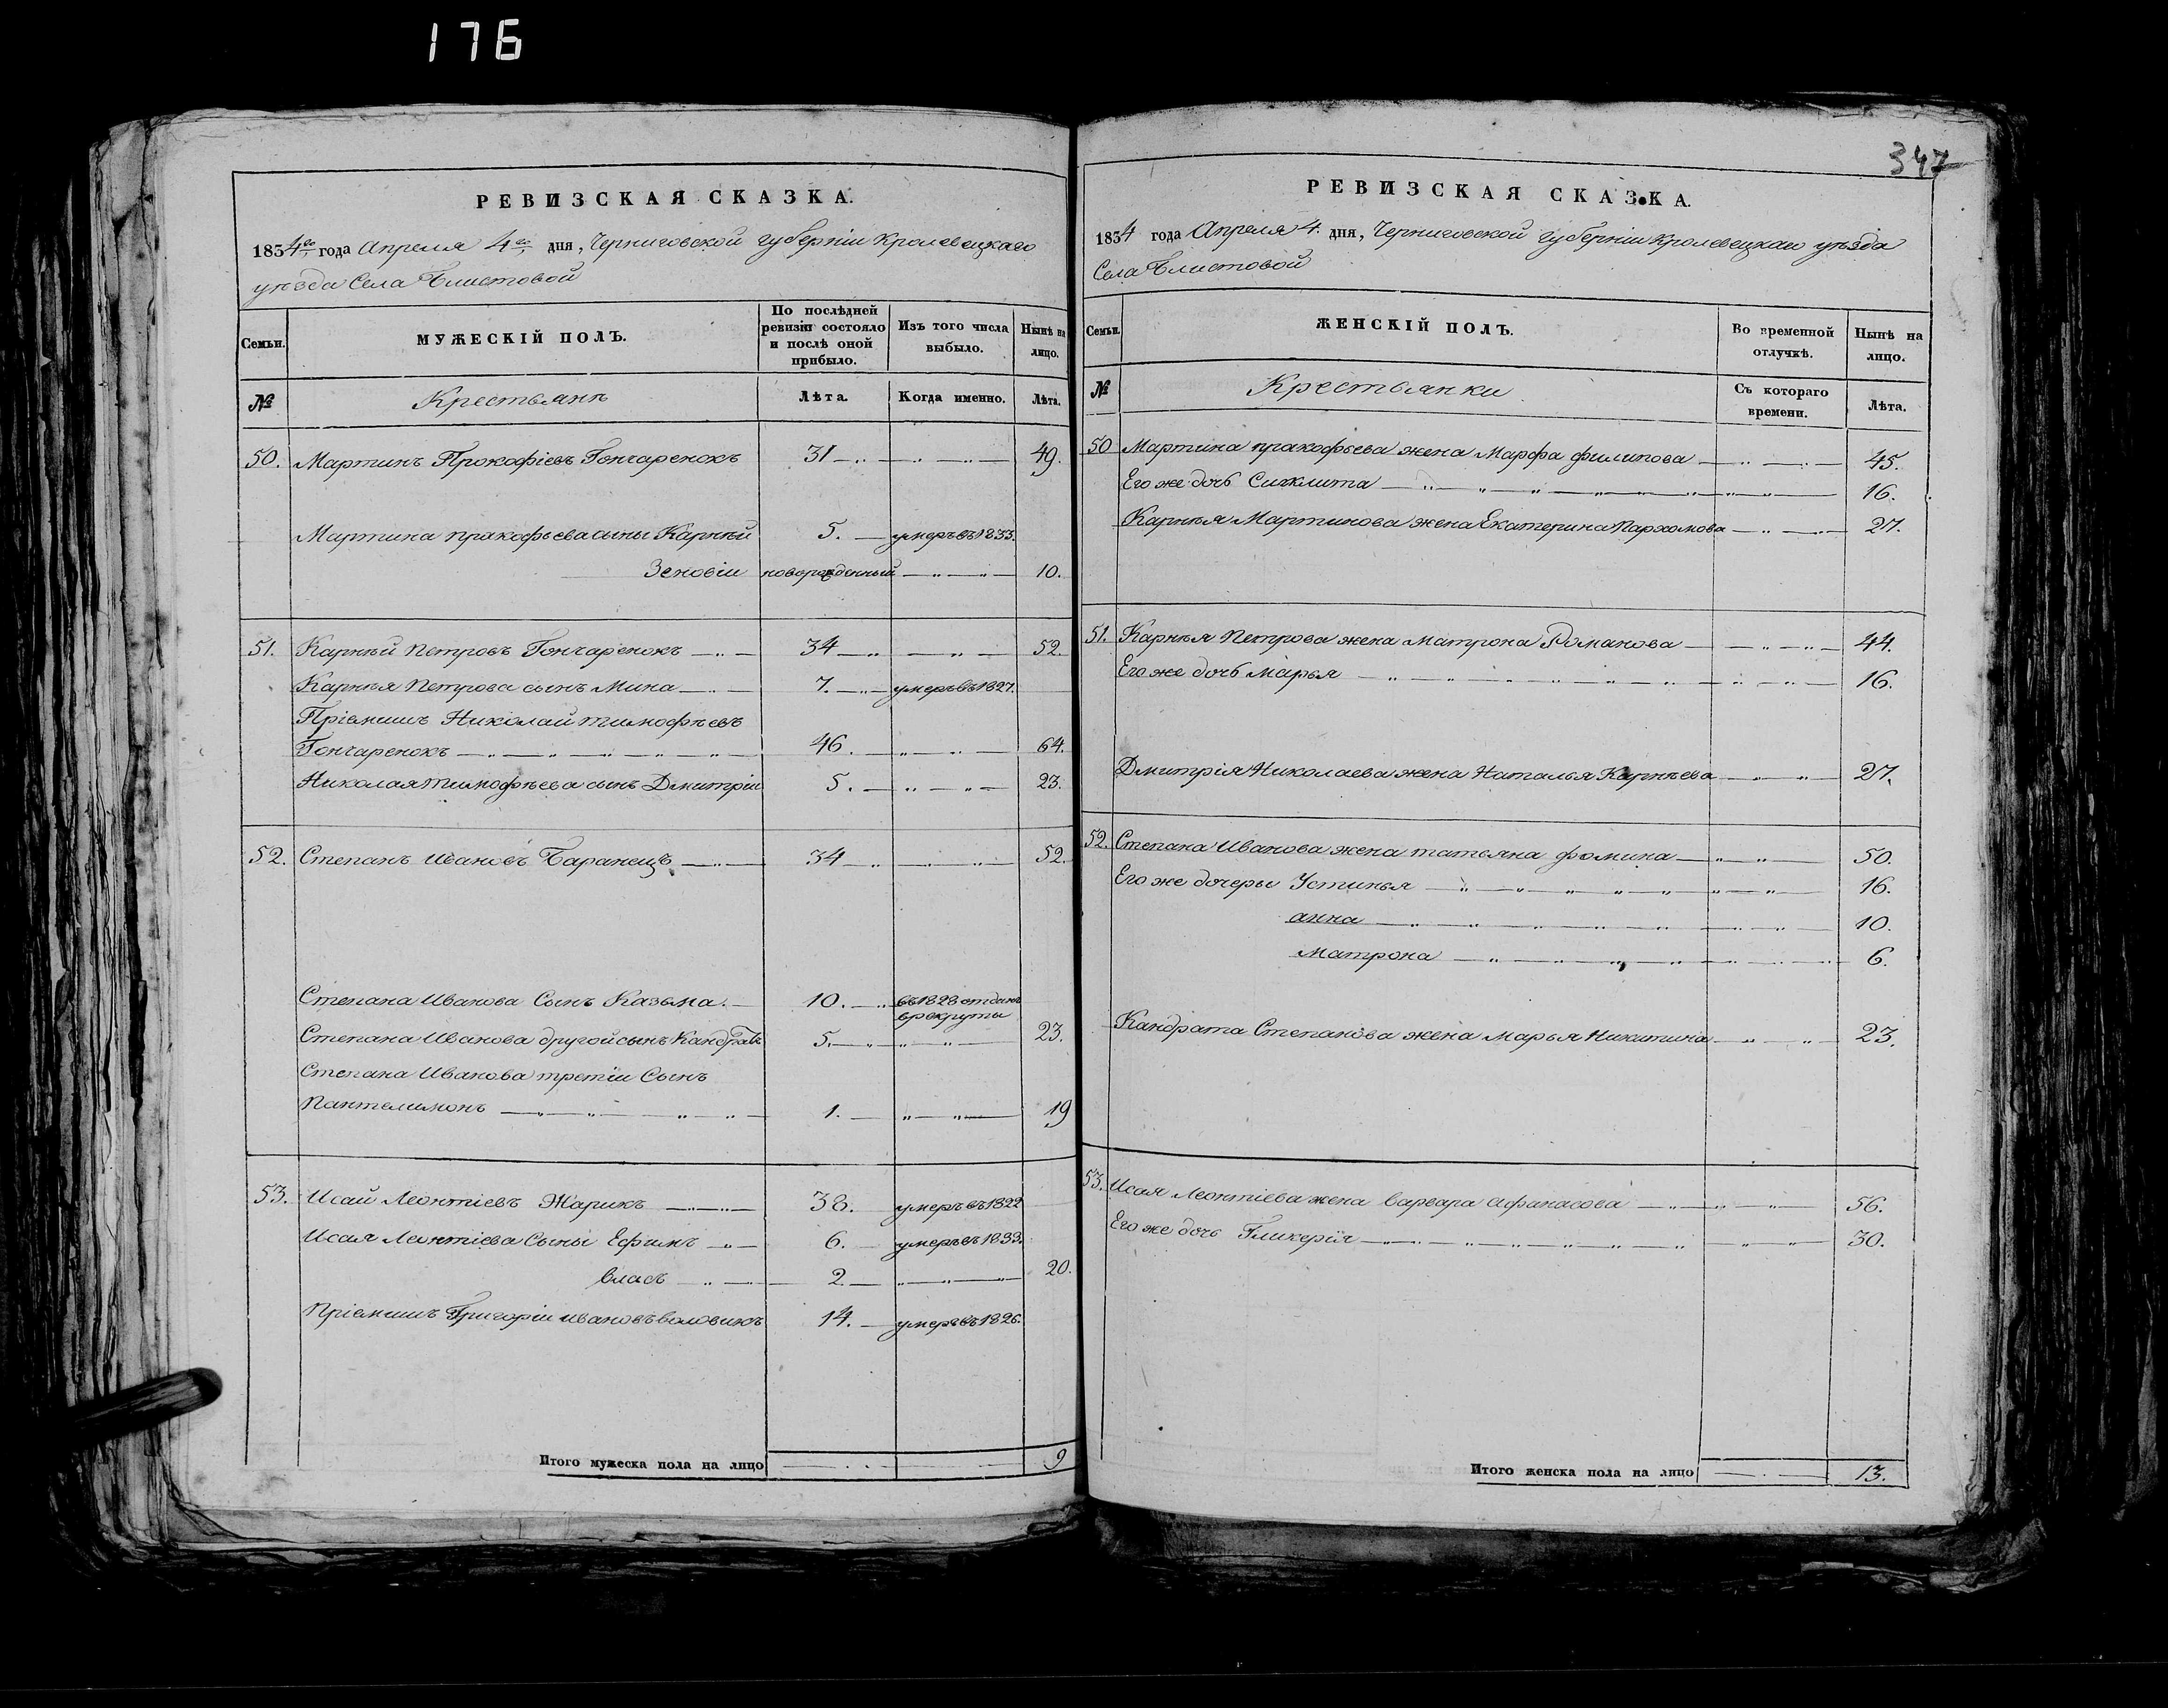 176
РЕВИЗСКАЯ СКАЗКА.
1834го года Апреля 4го дня, Черниговской губерніи Кролевецкаго
уѣзда Села Блистовой
Семьи. МУЖЕСКІЙ ПОЛЪ. По послѣдней ревизіи состояло и послѣ оной прибыло. Изъ того числа выбыло. Нынѣ на лицо.
№ Крестьянъ Лѣта. Когда именно. Лѣта.
50. Мартинъ Прокофіевъ Гончаренокъ 31 49.
Мартина пракофьева сыны Карнѣй 5. умеръ въ 1833.
Зеновіи новорожденный 10.
51. Карнѣй Петровъ Гончаренокъ 34 52.
Карнѣя Петрова сынъ Мина 7. умеръ въ 1827.
Пріемышъ Николай тимофѣевъ
Гончаренокъ 46. 64.
Николая тимофѣева сынъ Дмитріи 5. 23.
52. Степанъ Ивановъ Баранецъ 34 52.
Степана Иванова Сынъ Казьма 10. въ 1828 отданъ
в рекруты
Степана Иванова другой сынъ Кандратъ 5. 23.
Степана Иванова третіи Сынъ
Пантелимонъ 1. 19
53. Исай Леонтіевъ Жарикъ 38. умеръ въ 1822
Исая Леонтіева Сыны Ефимъ 6. умеръ въ 1833.
власъ 2 20.
Пріемышъ Григоріи ивановъ воловикъ 14. умеръ въ 1826.
Итого мужеска пола на лицо 9
347
РЕВИЗСКАЯ СКАЗКА.
1834 года Апреля 4. дня, Черниговской губерніи Кролевецкаго уѣзда
Села Блистовой
Семьи. ЖЕНСКІЙ ПОЛЪ. Во временной отлучкѣ. Нынѣ на лицо.
№ Крестьянки Съ котораго времени. Лѣта.
50 Мартина пракофьева жена Марфа филипова 45.
Его же дочь Сигклита 16.
Карнѣя Мартинова жена Екатерина Пархомова 27.
51. Карнѣя Петрова жена Матрона Романова 44.
Его же дочь Марья 16.
Дмитрія Николаева жена Наталья Карнѣева 27.
52. Степана Иванова жена татьяна фомина 50.
Его же дочеры Устинья 16.
анна 10.
Матрона 6.
Кандрата Степанова жена Марья Никитина 23.
53. Исая Леонтіева жена варвара афанасова 56.
Его же дочь Гликерія 30.
Итого женска пола на лицо 13.